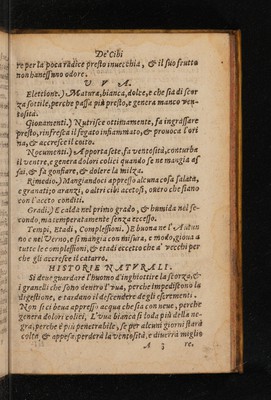 De' Cibi
re per la poca radice presto inuecchia, & il suo frutto
non hanessuno odore.
V V A.
Elettione.) Matura, bianca, dolce, e che sia di scor
za sottile, perche passa più presto, e genera manco ven-
tosità.
Giouamenti.) Nutrisce ottimamente, fa ingrassare
presto, rinfresca il fegato infiammato, & prouoca l'ori
na, & accresce il coito.
Nocumenti.) Apporta sete, fa ventosità, conturba
il ventre, e genera dolori colici quando se ne mangia as
sai, & fa gonfiare, & dolere la milza.
Rimedio.) Mangiandoci appresso alcuna cosa salata,
e granati, o aranzi, o altri cibi acetosi, ouero che siano
con l'aceto conditi.
Gradi.) E calda nel primo grado, & humida nel se-
condo, ma temperatamente senza eccesso.
Tempi, Etadi, Complessioni.) E buona ne l'Autun
no e nel Verno, e si mangia con misura, e modo, gioua a
tutte le complessioni, & etadi eccetto che a' vecchi per
che gli accresce il catarro.
HISTORIE NATVRALI.
Si dee guardare l'huomo d'inghiottire la scorza, &
i granelli che sono dentro l'vua, perche impediscono la
digestione, e tardano il descendere de gli escrementi.
Non si ci beua appresso acqua che sia con neue, perche
genera dolori colici. L'vua bianca si loda più della ne-
gra, perche è più penetrabile, se per alcuni giorni starà
colta, & appesa, perderà la ventosità, e diuerrà miglio
A 3 re.